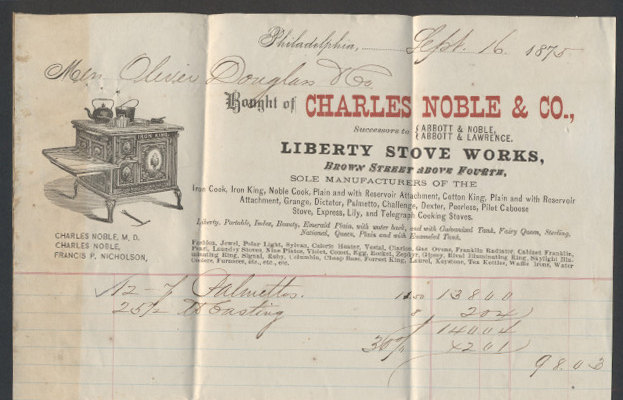 Philadelphia, Sept. 16 1875
Mess Oliver Douglass & Co.
Bought of CHARLES NOBLE & CO.,
Successors to { ABBOTT & NOBLE, ABBOTT & LAWRENCE.
LIBERTY STOVE WORKS,
BROWN STREET ABOVE FOURTH,
SOLE MANUFACTURERS OF THE
Iron Cook, Iron King, Noble Cook, Plain and with Reservoir Attachment, Cotton King, Plain and with Reservoir
Attachment, Grange, Dictator, Palmetto, Challenge, Dexter, Peerless, Pilot Caboose
Stove, Express, Lily, and Telegraph Cooking Stoves.
Liberty, Portable, Index, Beauty, Emerald Plain, with water back, and with Galvanized Tank, Fairy Queen, Sterling,
National, Queen, Plain and with Enameled Tank.
Fashion, Jewel, Polar Light, Sylvan, Calorie Heater, Vestal, Charles, Gas Ovens, Franklin Radiator, Cabinet Franklin,
Pond, Laundry Stoves, Nine Plates, Violet, Comet, Egg, Rocket, Zephyr, Gipsey, Rival Illuminating King, Skylight Illu-
minating King, Signal, Ruby, Columbia, Cheap Base, Forrest King, Laurel, Keystone, Tea Kettles, Waffle Irons, Water
Coolers, Furnaces, etc., etc., etc.
IRON KING
CHARLES NOBLE, M. D.
CHARLES NOBLE,
FRANCIS P. NICHOLSON,
12 - 7 Palmettos. 11.50 138 00
25 1/2 lb Casting 8 2 04
140 04
30% 42 01
98.03